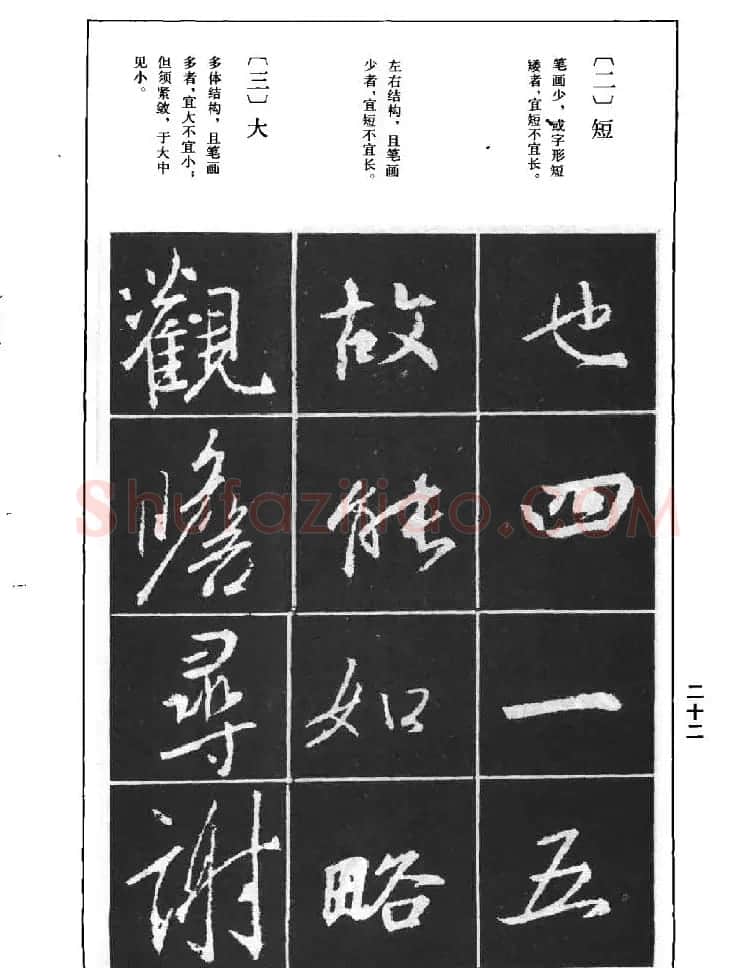 〔二〕短
笔画少，或字形短
矮者，宜短不宜长。
左右结构，且笔画
少者，宜短不宜长。
〔三〕大
多体结构，且笔画
多者，宜大不宜小；
但须紧敛，于大中
见小。
也四一五
故能如略
觀瞻尋謝
二十二
Shufaziliao.COM